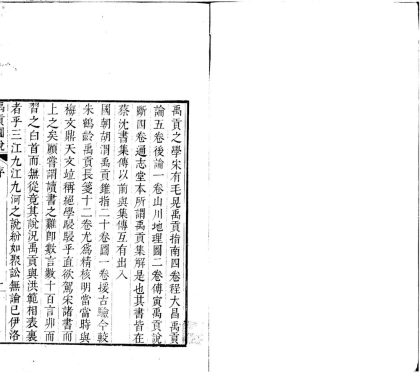 禹貢之學宋有毛晃禹貢指南四卷程大昌禹貢
論五卷後論一卷山川地理圖二卷傅寅禹貢說
斷四卷通志堂本所謂禹貢集解是也其書皆在
蔡沈書集傳以前與集傳互有出入
國朝胡渭禹貢錐指二十卷圖一卷援古驗今較
朱鶴齡禹貢長箋十二卷尤為精核明當當時與
梅文鼎天文竝稱絕學駸駸乎直欲駕宋諸書而
上之矣顧嘗謂讀書之難即數十百言丱而
習之白首而無從竟其說況禹貢與洪範相表裏
者乎三江九江九河之說紛如聚訟無論已伊洛
禹貢圖說
序